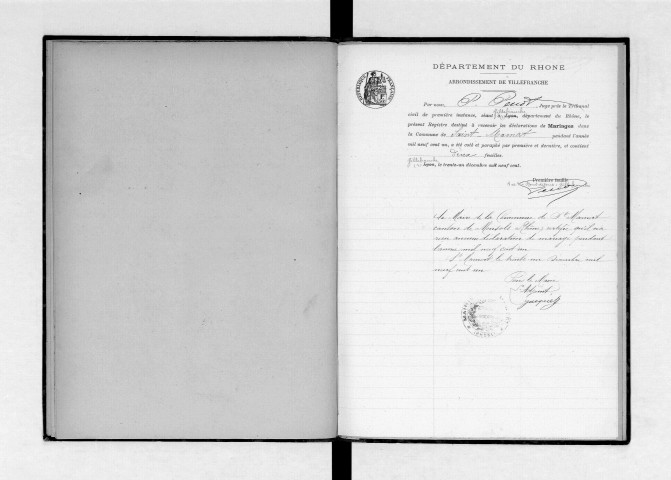 DÉPARTEMENT DU RHONE
ARRONDISSEMENT DE VILLEFRANCHE
Par nous, P. Juge près le Tribunal
Villefranche
civil de première instance, séant à Lyon, département du Rhône, le
présent Registre destiné à recevoir les déclarations de Mariages dans
la Commune de Saint-Mamert pendant l'année
mil neuf cent un, a été coté et paraphé par première et dernière, et contient
Deux feuilles.
Villefranche
Lyon, le trente-un décembre mil neuf cent.
Première feuille
Le Maire de la Commune de St Mamert
canton de Monsols Rhône, certifie qu'il n'a
reçu aucune déclaration de mariage pendant
l'année mil neuf cent un
St Mamert le trente un décembre mil
neuf cent un
Pour le Maire
l'Adjoint